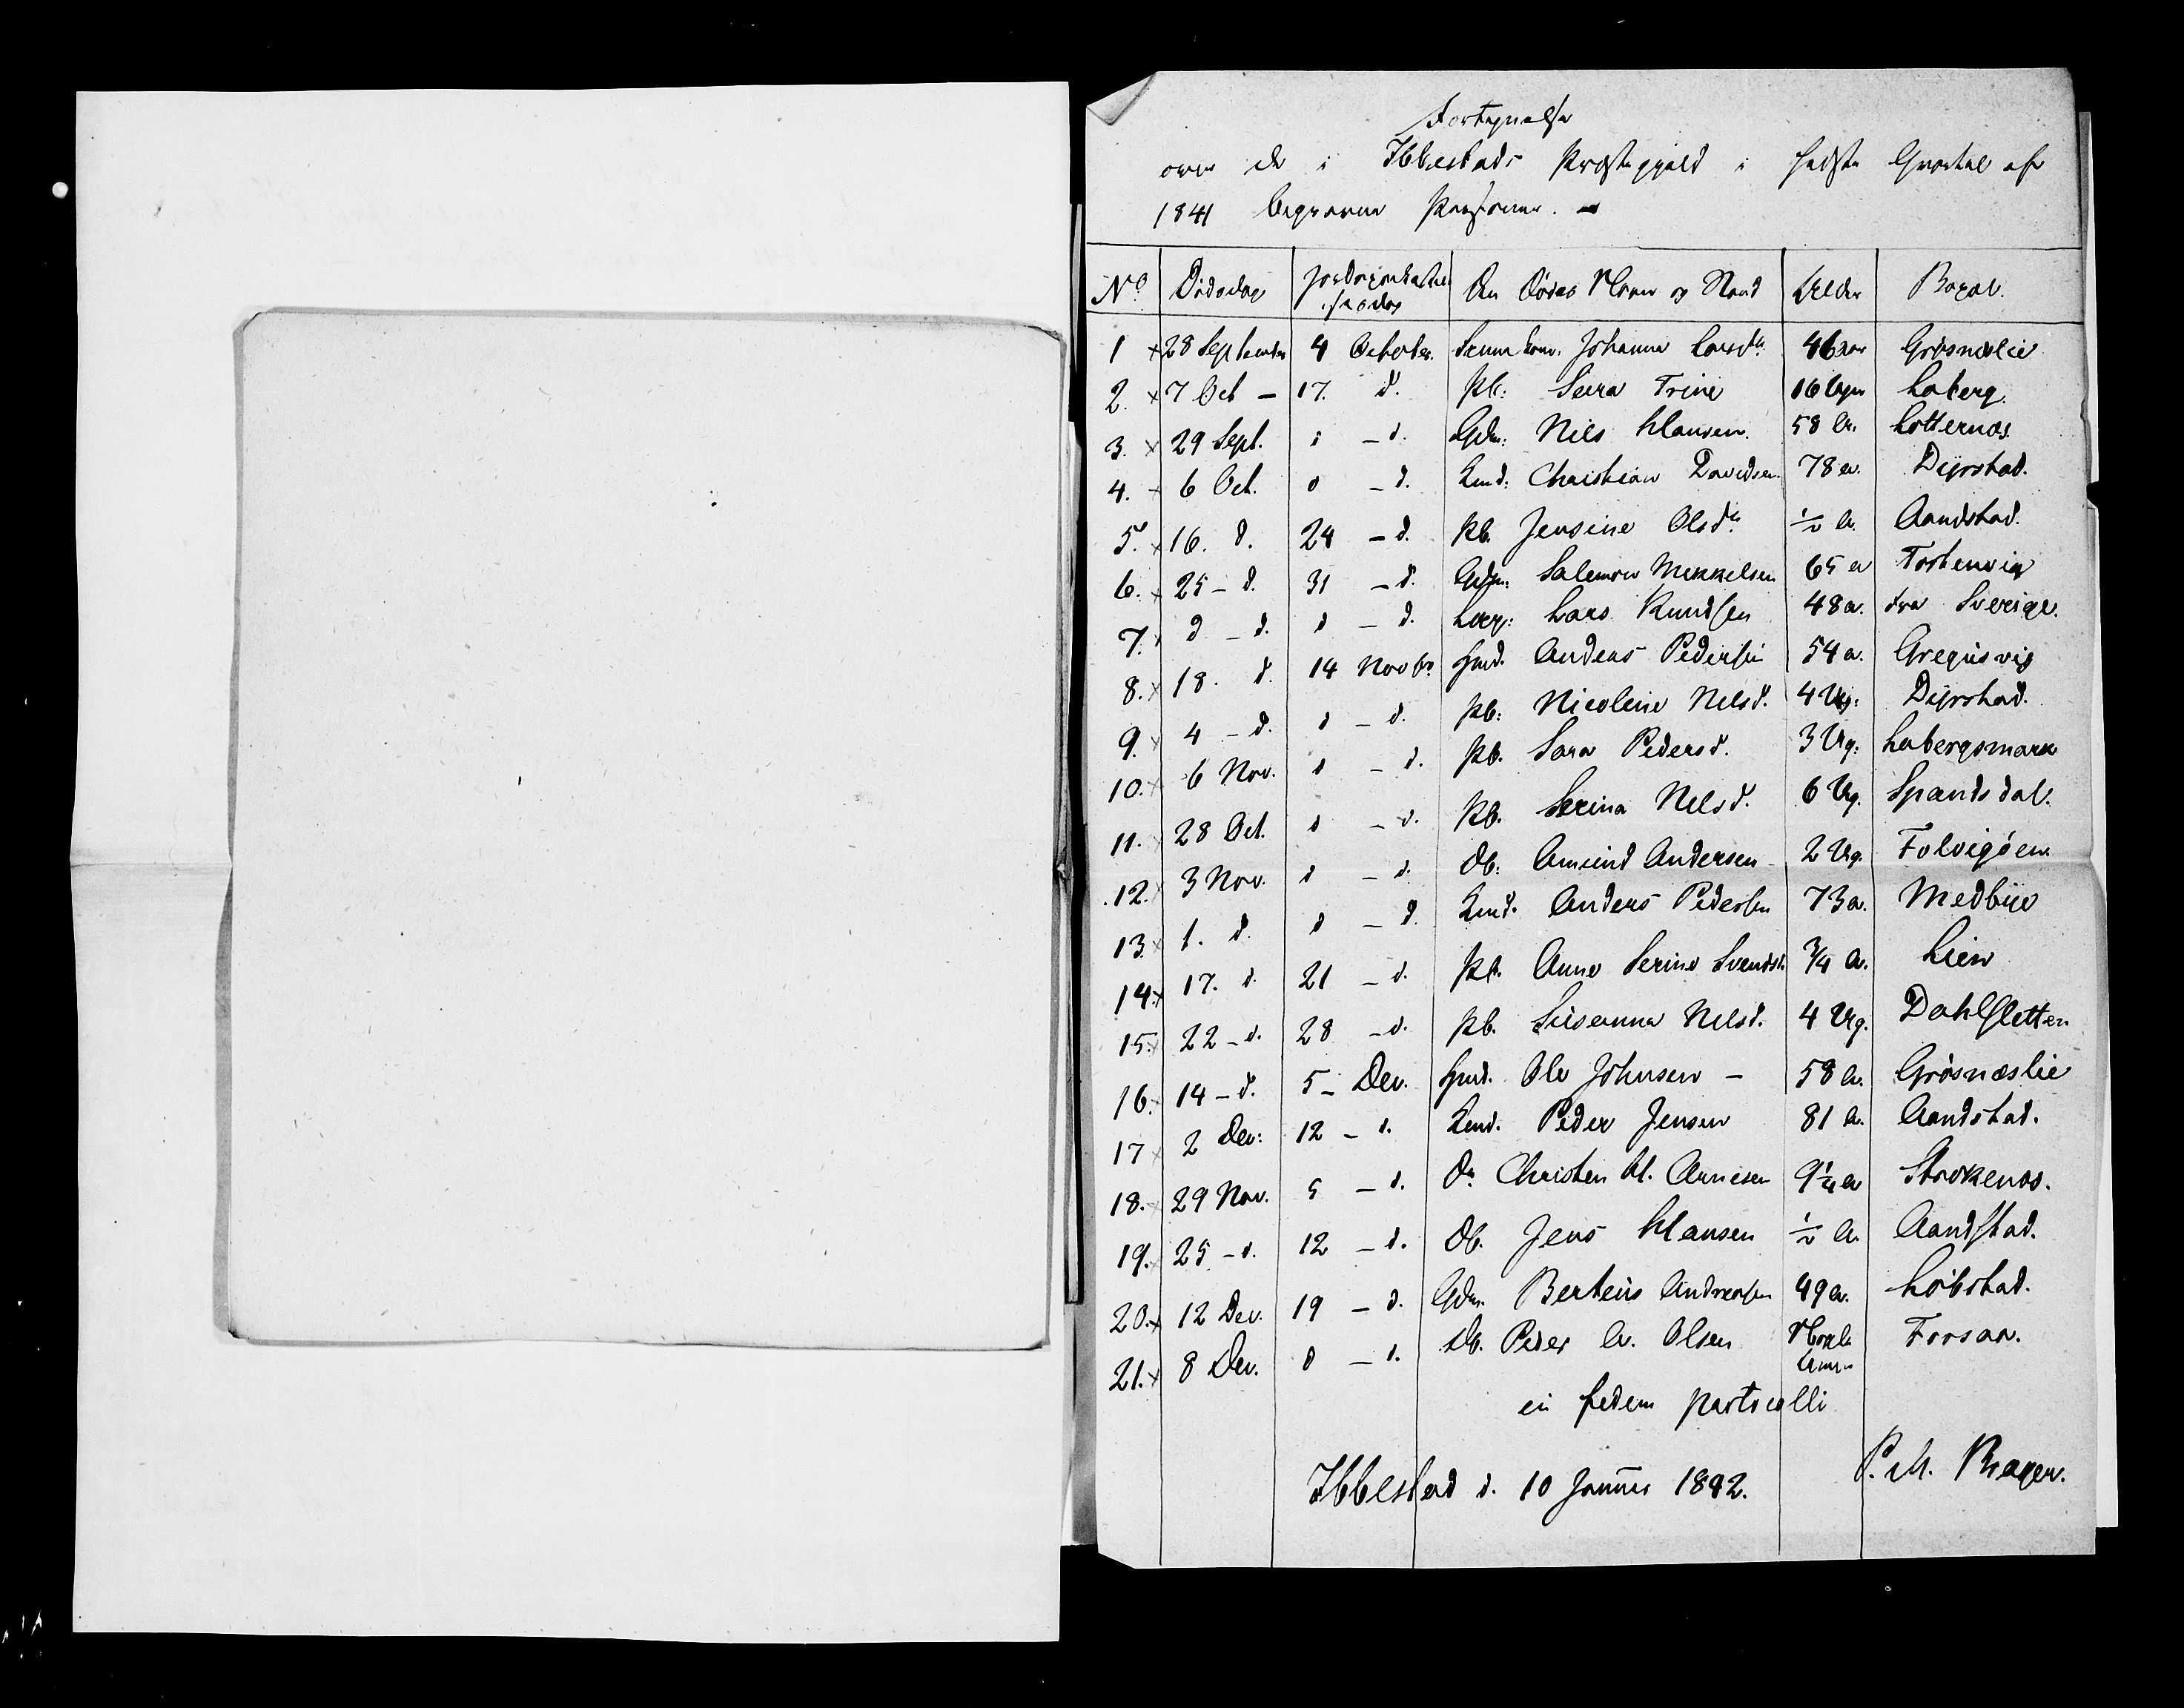 Fortegnelse
over de i Ibbestads Præstegjeld i sidste Qvartal af
1841 begravne Personer. –
No. Dødsdag Jordpaakastelsesdag Den Dødes Navn og Stand Alder Bopæl.
1 × 28 September 4 October. Johanna Larsdtr. 46 aar Grøsnæslie
2. × 7 Oct – 17. d. Pb: Sara Trine 16 Uger Laberg.
3. × 29 Sept. d – d. Gdm: Nils Hansen. 58 A. Kotternæs.
4. – 6 Oct. d – d. Lmd: Christian Davidsen. 78 a. Dyrstad.
5. × 16. d. 24 – d. Pb. Jensine Olsdtr ½ A. Aandstad.
6. × 25 – d. 31 – d. Gdm: Salemon Mekkelsen 65 a Forstenvig
7. × d – d. d – d. Lars Kundsen 48 a. fra Sverige.
8. × 18. d. 14 Novbr. Hmd. Anders Pedersen 54 a. Gregusvig
9. × 4 – d. d – d. Pb: Nicoline Nelsd. 4 Ug: Dyrstad.
10. × 6 Nov. d – d. Pb. Sara Pedersd. 3 Ug: Labergsmark
11. × 28 Oct. d – d. Pb. Serina Nelsd. 6 Ug. Spandsdal.
12. × 3 Nov. d – d. Db: Amund Andersen – 2 Ug. Folvigøen
13. × 1. d. d – d. Lmd. Anders Pedersen 73 a. Medbye
14. × 17. d. 21 – d. Pb. Anne Serine Svendsd. ¾ A. Lien
15. × 22 – d. 28 – d. Pb. Susanna Nelsd. 4 Ug. Dahlsletten
16. × 14 – d. 5 – Dec. Hmd. Ole Johnsen – 58 A. Grøsnæslie
17 × 2 Dec: 12 – d. Lmd. Peder Jensen 81 A. Aandstad.
18. × 29 Nov. 5 – d. Dr. Christen H. Arnesen 9¼ a Storkenæs.
19. × 25 – d. 12 – d. Db. Jens Hansen ½ A. Aandstad.
20. × 12 Dec. 19 – d. Gdm. Berteus Andreasen 49 a. Løbstad.
21. × 8 Dec. d – d. Db. Peder A. Olsen Forsaa.
in fidem protocolli
Ibbestad d. 10 Januar 1842. P. M. Krager.